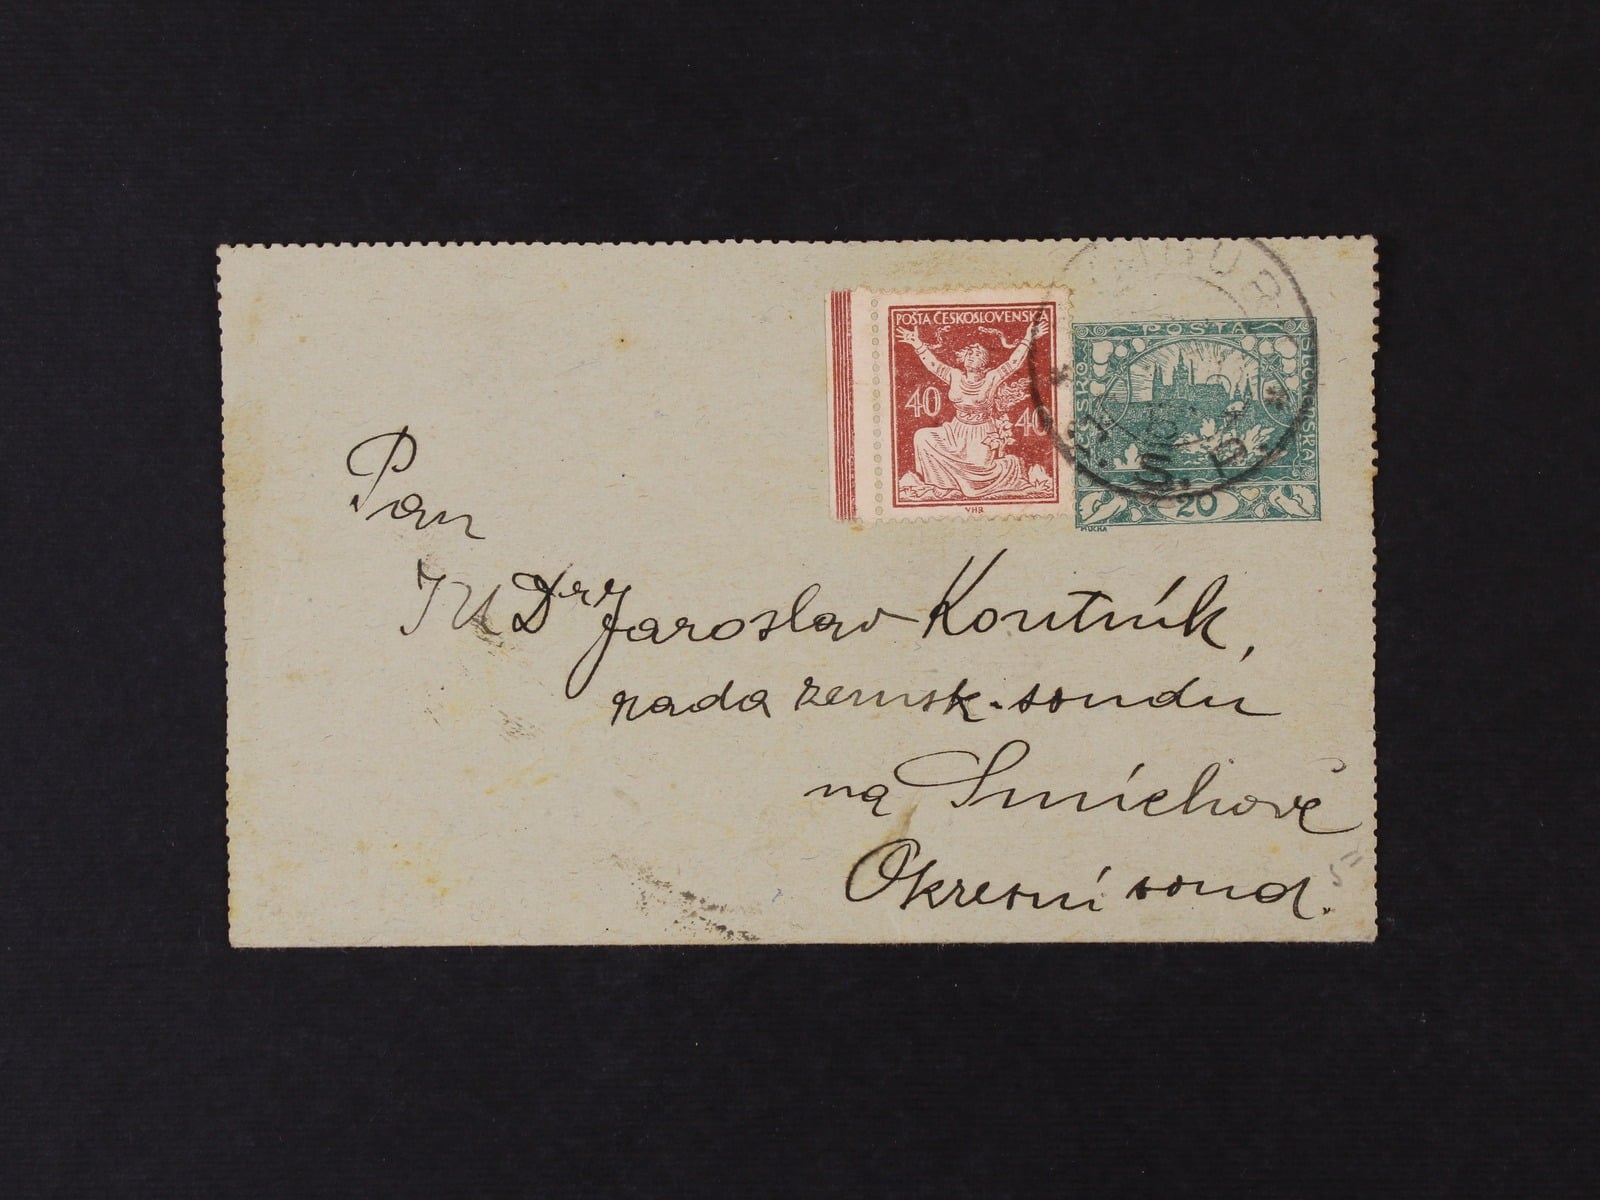 POŠTA ČESKOSLOVENSKÁ
40 40
VHB
POŠTA
ČESKO
SLOVENSKÁ
20
MUCHA
Pan
JUDr Jaroslav Koutník,
rada zemsk. soudu
na Smíchově
Okresní soud.